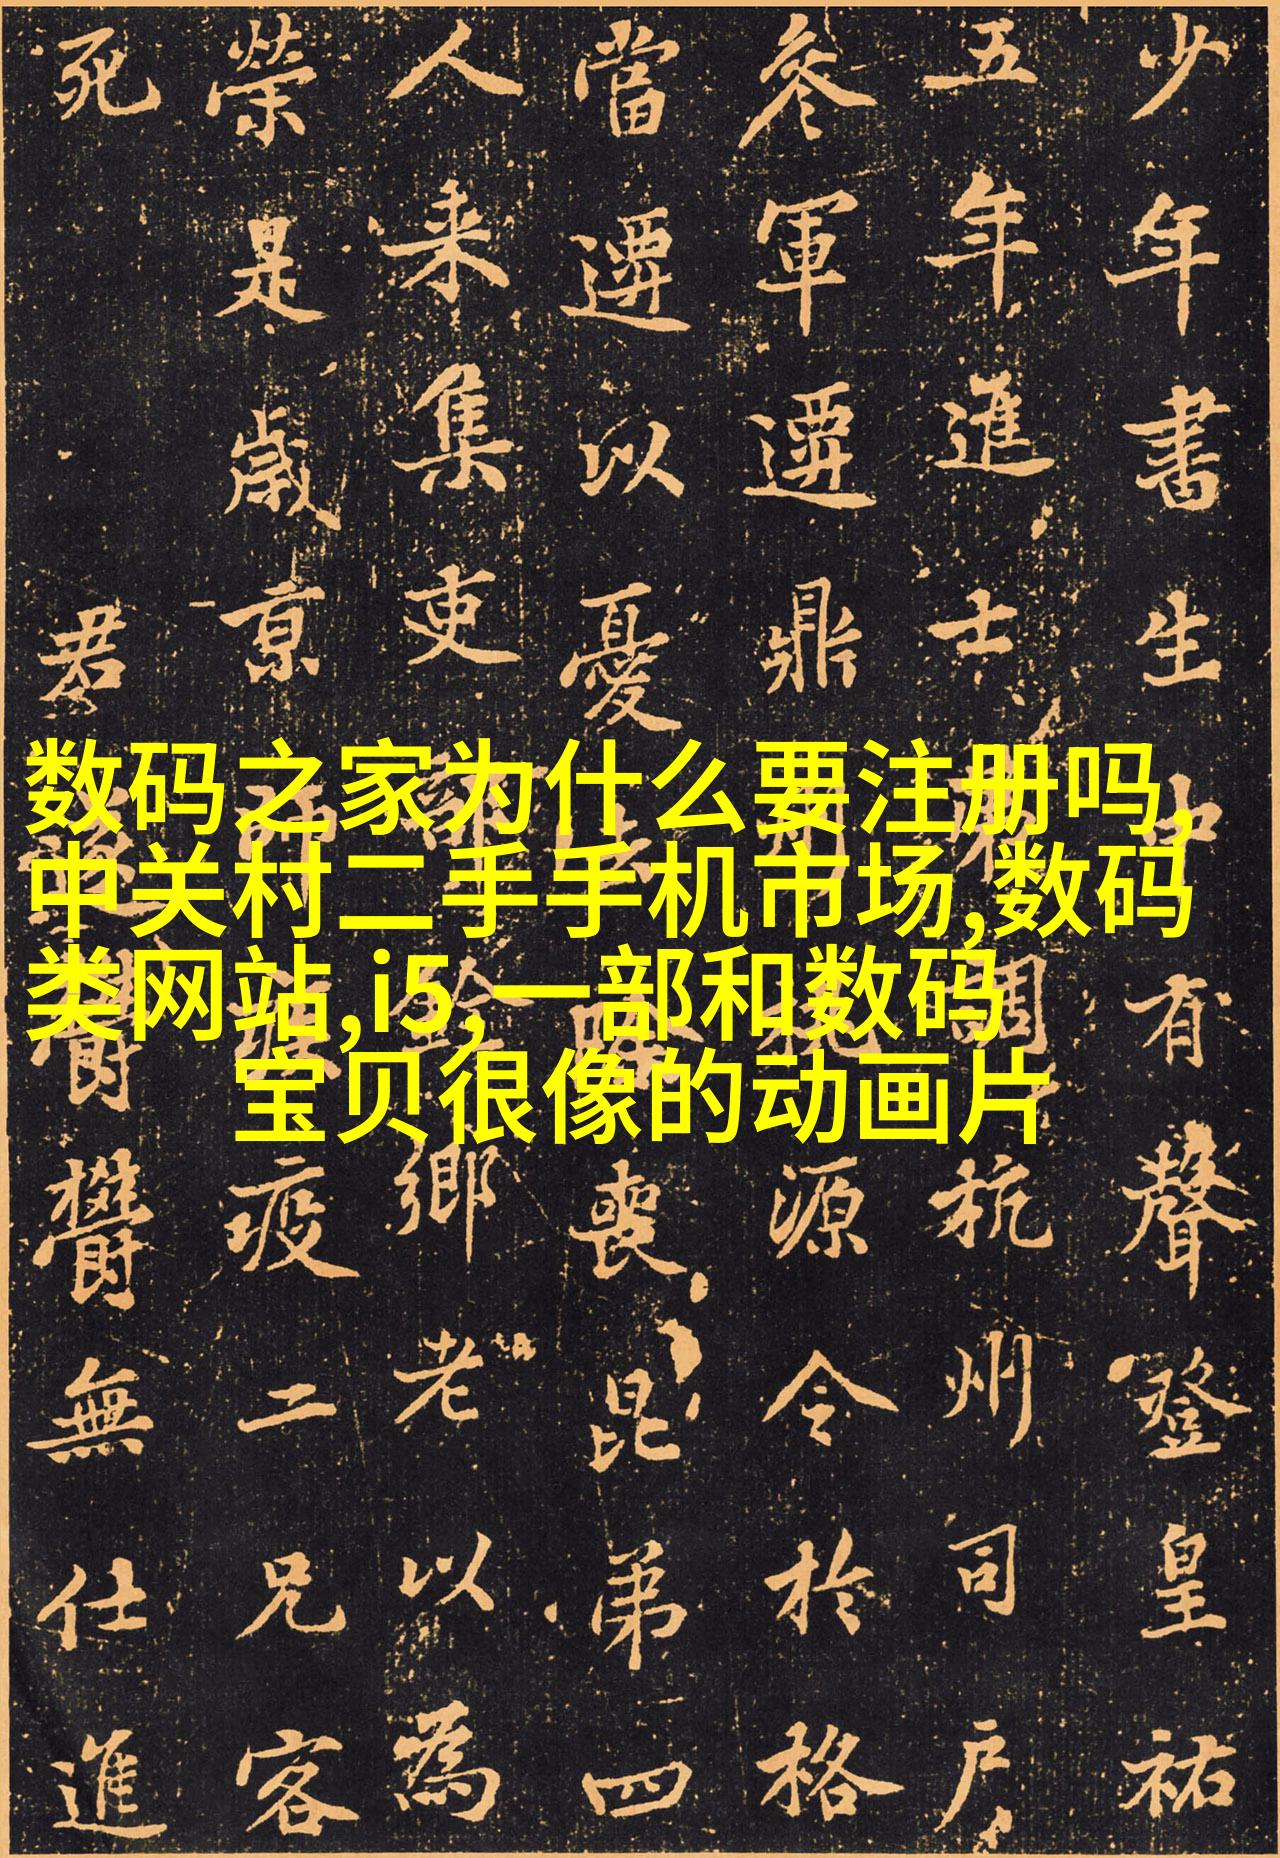 数码之家为什么要注册吗,
中关村二手手机市场,数码
类网站,i5,一部和数码
宝贝很像的动画片
少年書生中有聲登皇祐
五年進士調杭州司戶
參軍遷鼎州桃源令於格
當遷以憂喪昆弟四
人来集吏部銓鄉老以為
榮是歲京師疫二兄客
死君欝欝無仕進